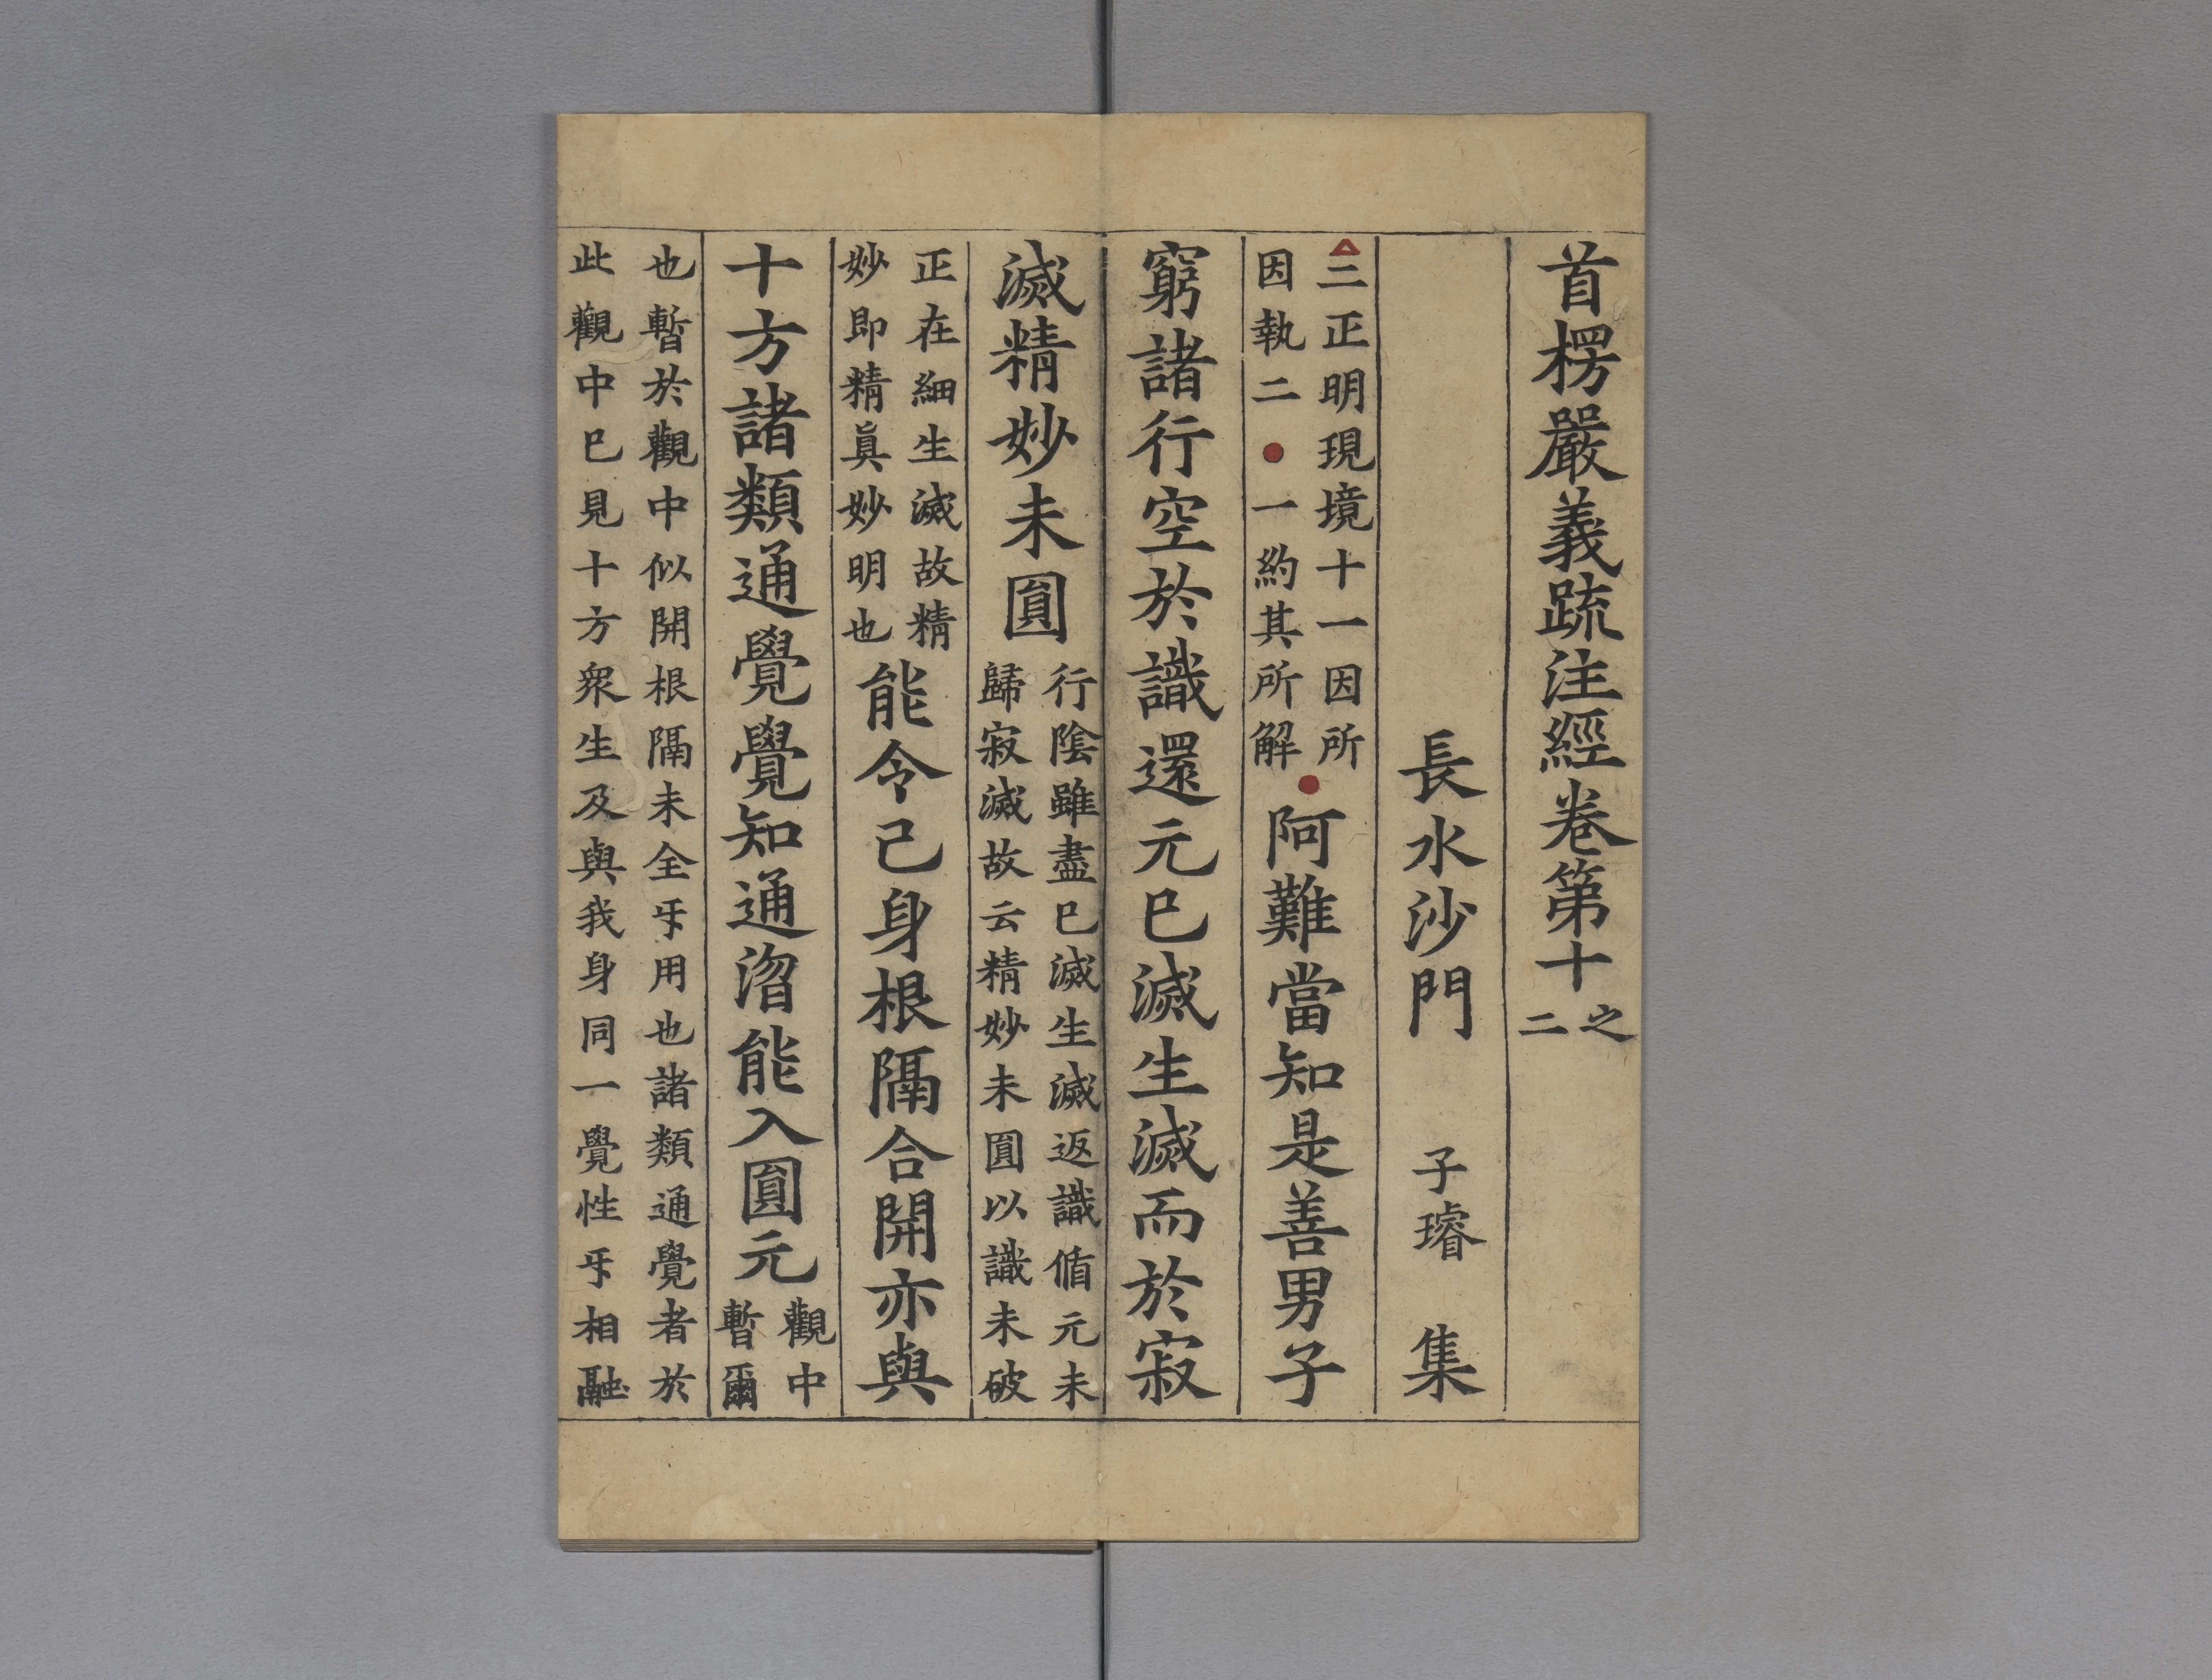 首楞嚴義疏注經卷第十之二
長水沙門 子璿 集
三正明現境十一因所因執二一約其所解阿難當知是善男子
窮諸行空於識還元已滅生滅而於寂
滅精妙未圎行隂雖盡已滅生滅返識循元未歸寂滅故云精妙未圎以識未破
正在細生滅故精妙即精真妙明也能令己身根隔合開亦與
十方諸類通覺覺知通㳷能入圎元觀中暫爾
也暫於觀中似開根隔未全㸦用也諸類通覺者於
此觀中已見十方衆生及與我身同一覺性㸦相融